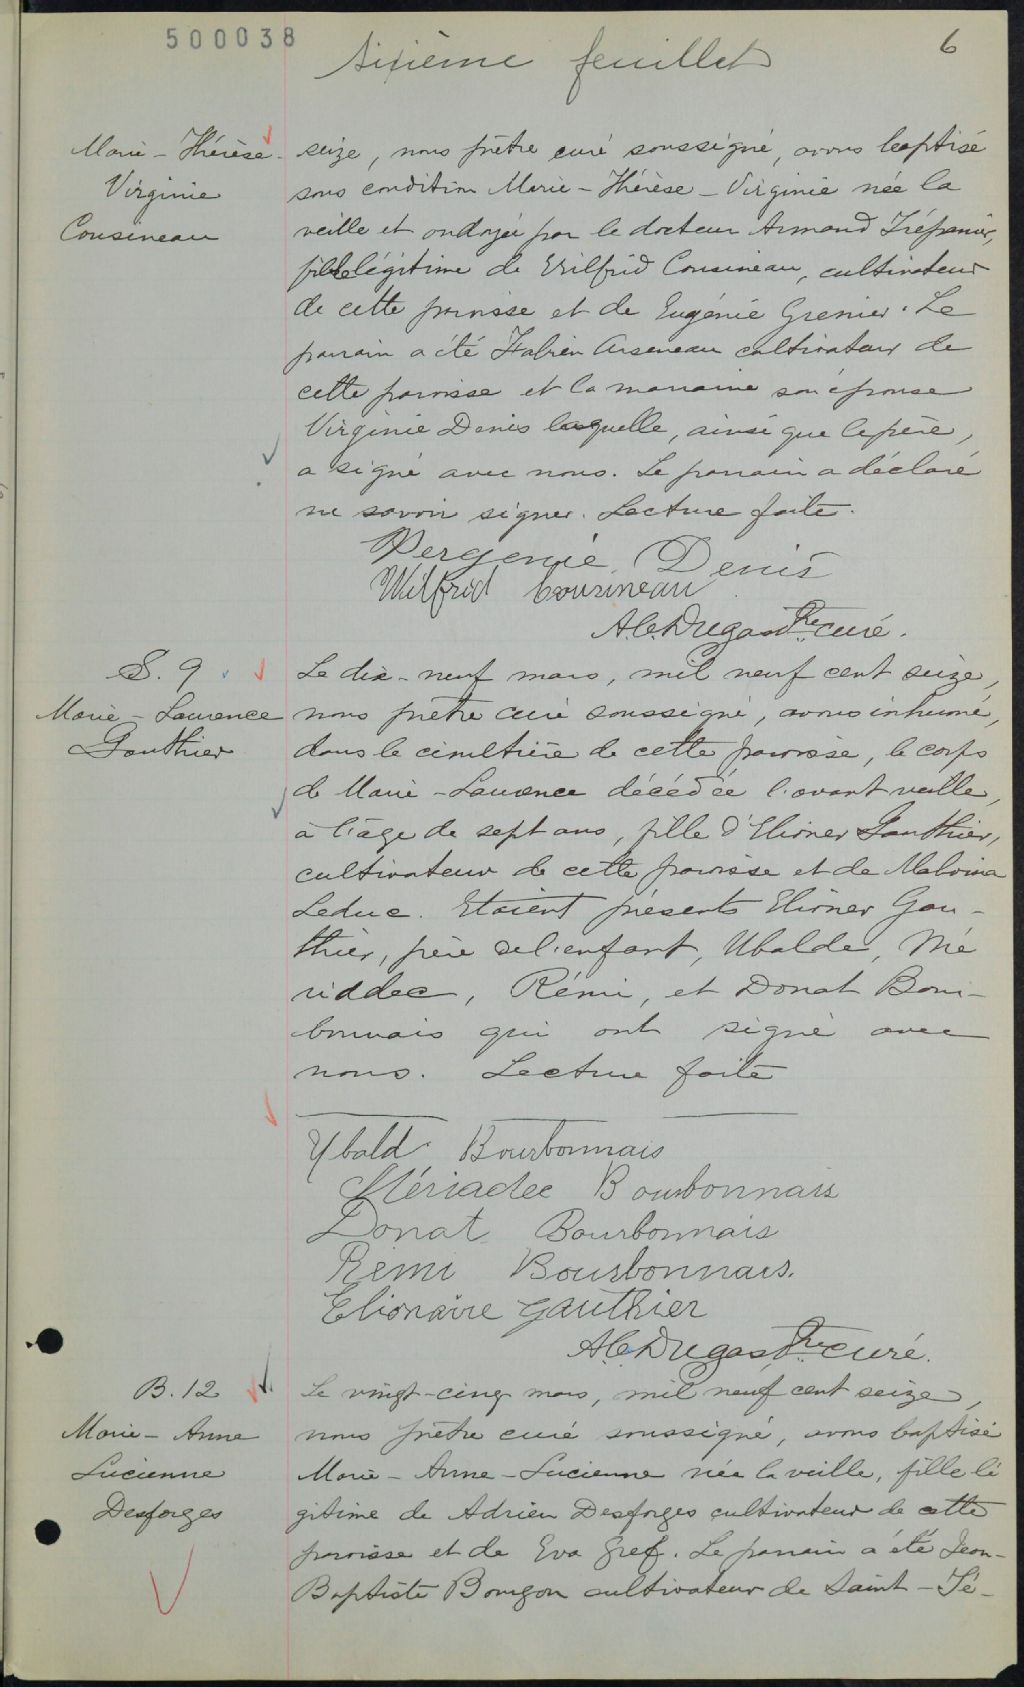 500038
Sixième feuillet
6
Marie-Thérèse
Virginie
Cousineau
seize, nous prêtre curé soussigné, avons baptisé
sous condition Marie-Thérèse-Virginie née la
veille et ondoyée par le docteur Armand Trépanier,
fille légitime de Wilfrid Cousineau, cultivateur
de cette paroisse et de Eugénie Grenier. Le
parrain a été Fabien Arseneau cultivateur de
cette paroisse et la marraine son épouse
Virginie Denis laquelle, ainsi que le père,
a signé avec nous. Le parrain a déclaré
ne savoir signer. Lecture faite.
Vergenie Denis
Wilfrid Cousineau
A. C. Dugas Ptre curé.
S. 9
Marie-Laurence
Gauthier
Le dix-neuf mars, mil neuf cent seize,
nous prêtre curé soussigné, avons inhumé,
dans le cimetière de cette paroisse, le corps
de Marie-Laurence décédée l'avant veille,
à l'âge de sept ans, fille d'Elioner Gauthier,
cultivateur de cette paroisse et de Malvina
Leduc. Etaient présents Elioner Gau-
thier, père de l'enfant, Ubalde, Mé
riadec, Rémi, et Donat Bour-
bonnais qui ont signé avec
nous. Lecture faite
Ubald Bourbonnais
Mériadec Bourbonnais
Donat Bourbonnais
Remi Bourbonnais.
Elionaire Gauthier
A. C. Dugas Ptre curé.
B. 12
Marie-Anne
Lucienne
Desforges
Le vingt-cinq mars, mil neuf cent seize,
nous prêtre curé soussigné, avons baptisé
Marie-Anne-Lucienne née la veille, fille lé
gitime de Adrien Desforges cultivateur de cette
paroisse et de Eva Gref. Le parrain a été Jean-
Baptiste Bourgon cultivateur de Saint-Té-